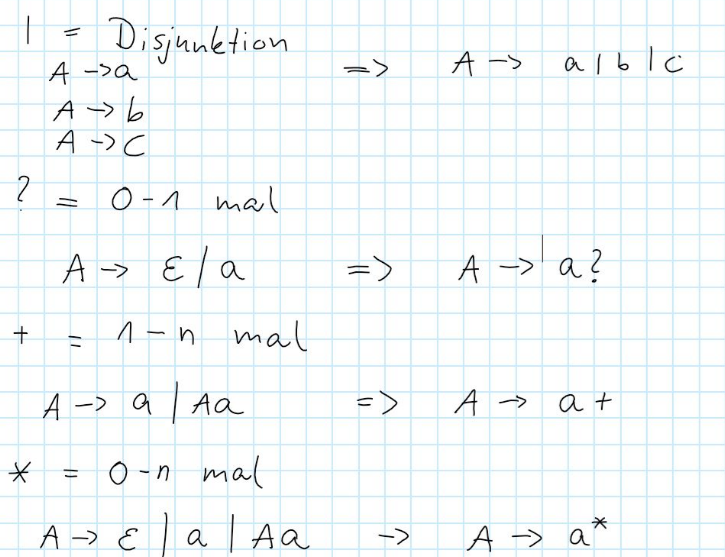 | = Disjunktion
A -> a => A -> a | b | c
A -> b
A -> c
? = 0-1 mal
A -> ε / a => A -> a?
+ = 1-n mal
A -> a | Aa => A -> a+
* = 0-n mal
A -> ε | a | Aa -> A -> a*